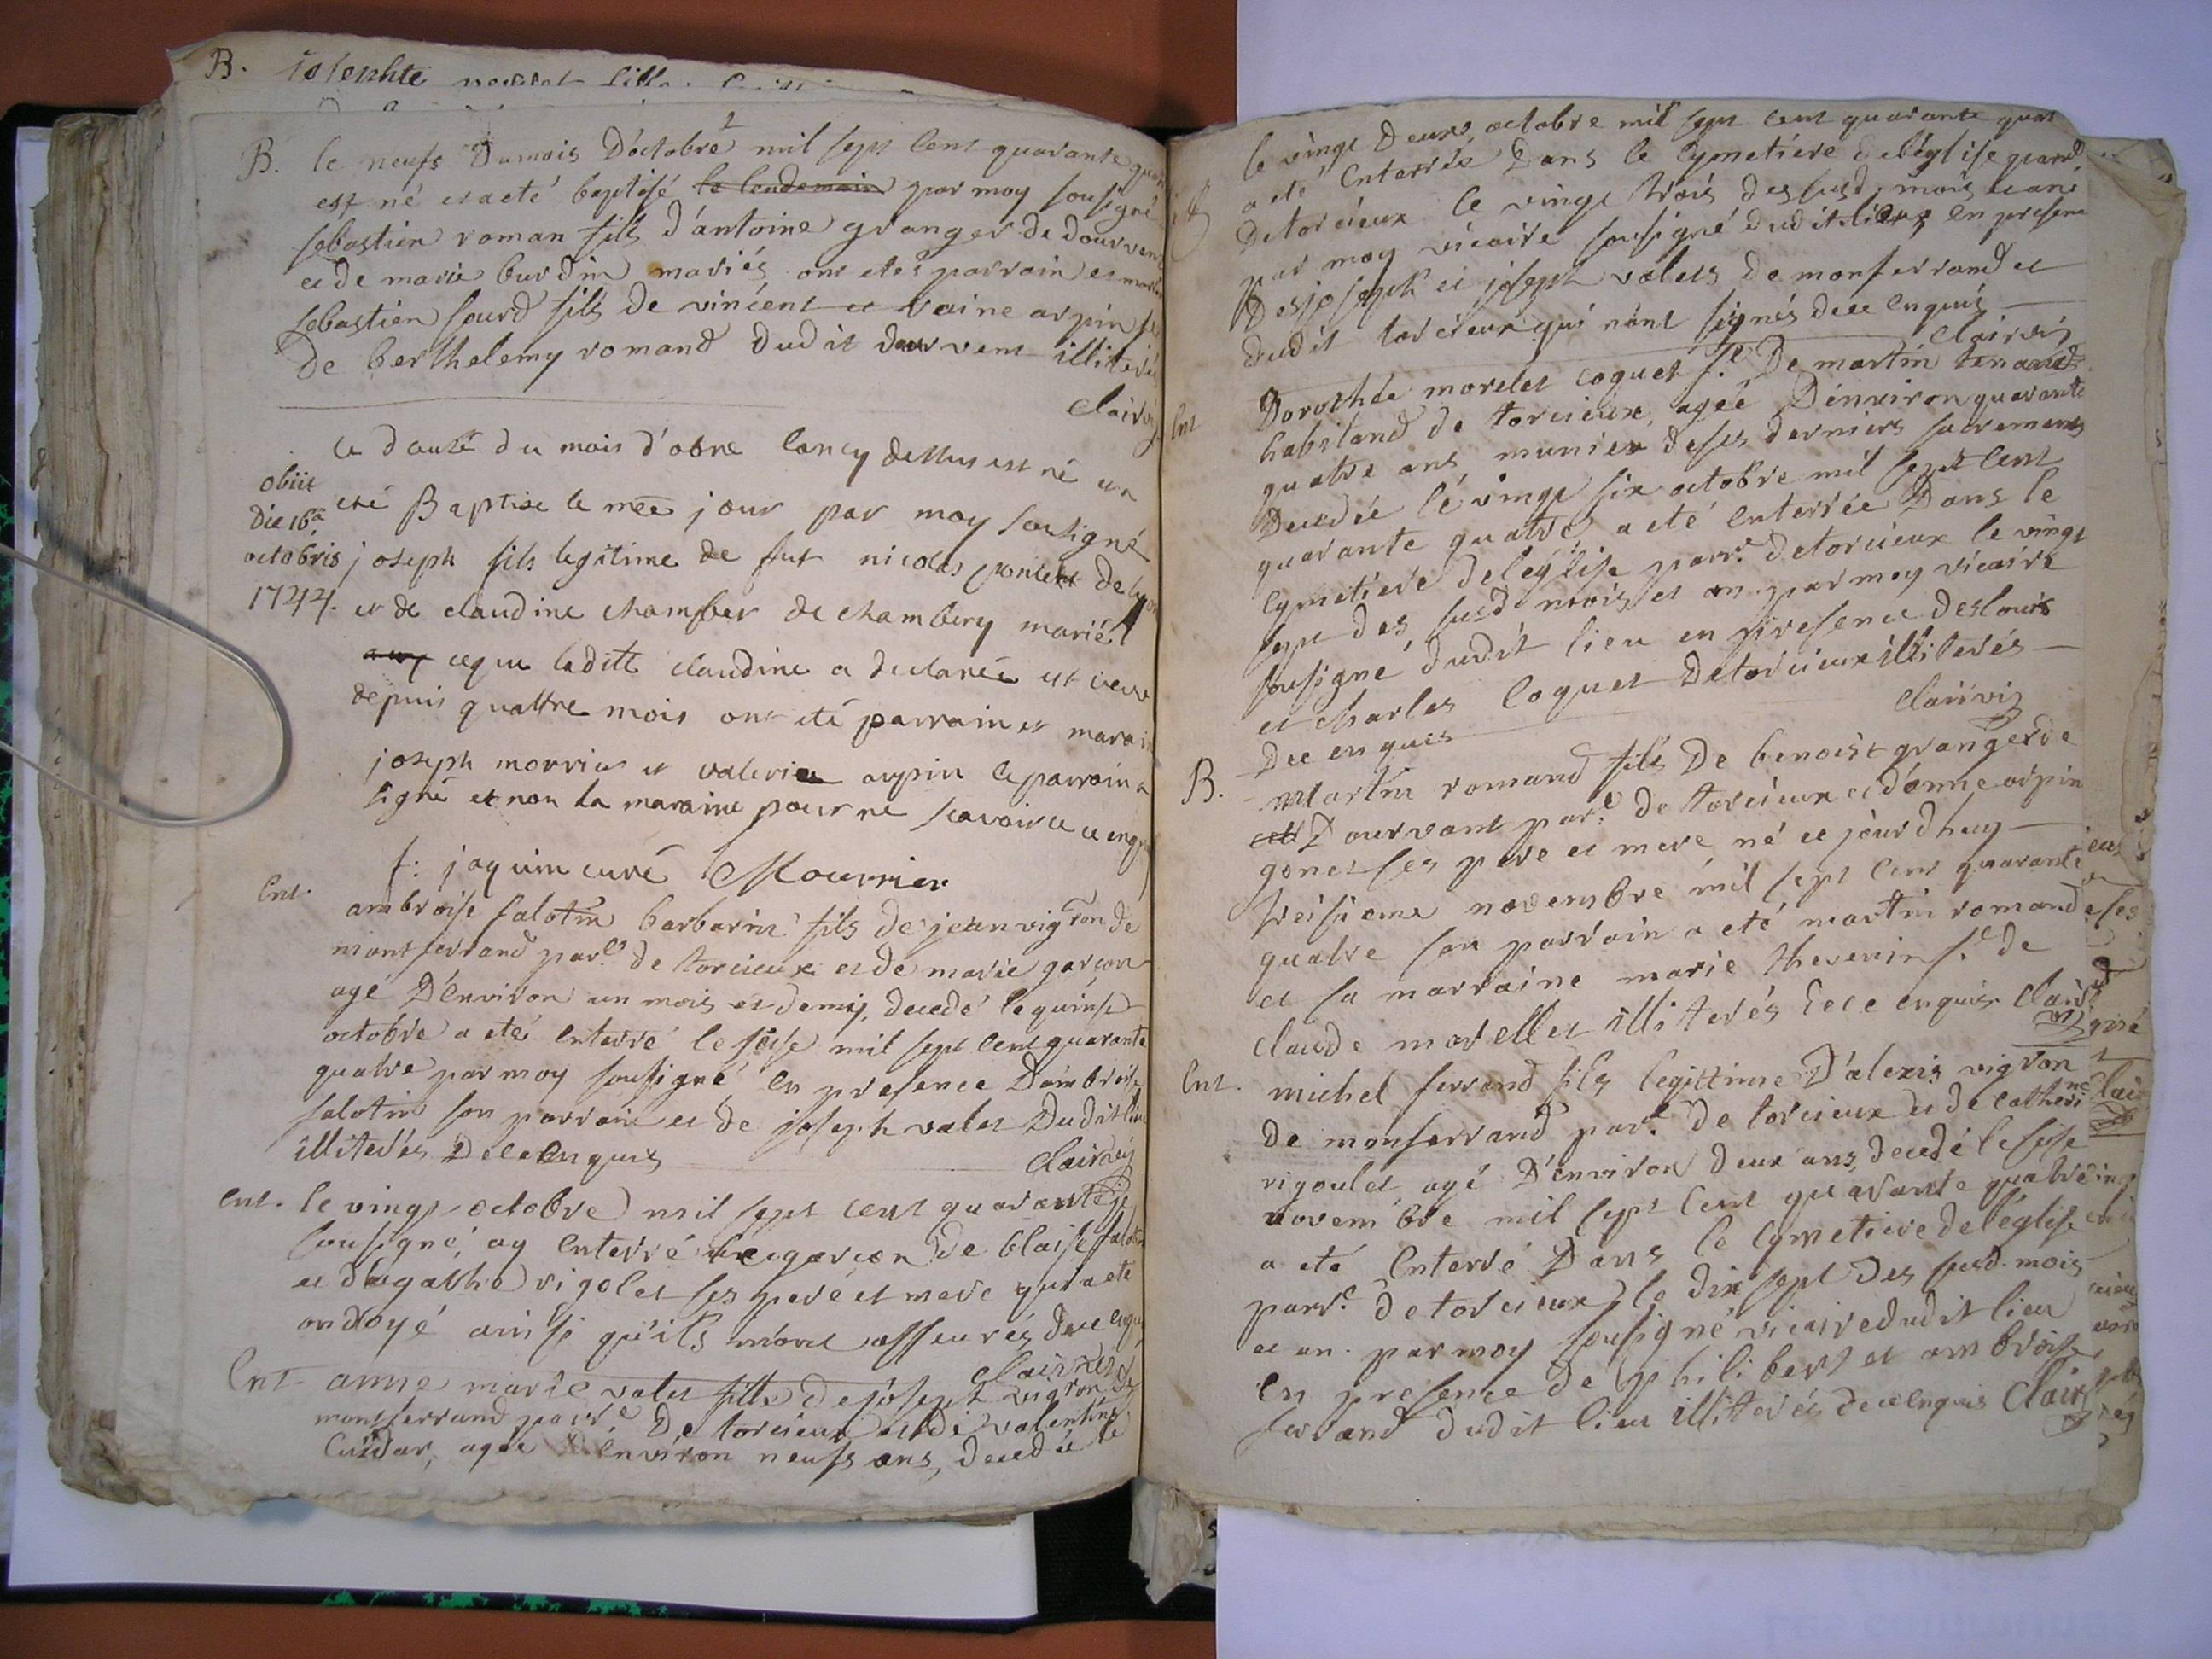 B. iosephte
B. le neufs Dumois D'octobre mil sept cent quarante
est né et a eté baptisé le lendemain par moy sousigné
sebastien roman fils d'antoine granger de dourvent
et de marie burdin mariés ont etés parrain et
sebastien sourd fils de vincent et arpin
De berthelemy romand dudit dourvent illiterés
Clairvi
Ce douze du mois d'obre l'an cy dessus est né et a
obiit
eté Baptisé le mee jour par moy sousigné
die 16a
octobris joseph fils legitime de fut nicolas poncet de
1744. et de claudine chamber de chambery mariés
ceque ladite claudine a declarée est veuve
depuis quattre mois ont eté parrain et maraine
joseph morrier et valerie arpin le parrain a
signé et non la maraine pour ne scavoir ce enquis
f: joquin curé Mourrier
Ent. ambroise salotin barbarin fils de jean vigron de
montferrand par.e de torcieux et de marie garçon
agé D'environ un mois et demy, decedé le quinse
octobre a eté enterré le seise mil sept cent quarante
quatre par moy sousigné en presence D'ambroise
salotin son parrain et de joseph valet Dudit lieu
illiterés De ce enquis Clairvi
Ent. le vingt octobre mil sept cent quarante je
sousigné, ay enterré un garçon de blaise salotin
et d'agathe rigolet ses pere et mere qui a eté
ondoyé ainsi qu'ils m'ont asseurés, de ce enquis
Clairvi
Ent anne marie valet fille de joseph vigron de
montferrand parr.e De torcieux et de valentine
Cusdar, agée D'environ neufs ans, decedée le
le vingt Deux, octobre mil sept cent quarante quat
a eté Enterrée Dans le Cymetiere de l'église parr
De torcieux le vingt trois des susd. mois et an
par moy vicaire sousigné dudit lieu, En presence
Des joseph et joseph valets De monferrand et
dudit torcieux qui n'ont signés de ce Enquis
Clairvi
Ent Dorothée morelet coquet f.e De martin tenand
habitand de torcieux, agée D'environ quarante
quatre ans, munies de ses derniers sacrements
Decedée le vingt six octobre mil sept cent
quarante quatre, a eté enterrée Dans le
Cymetiere de l'église parr.e de torcieux le vingt
sept des susd. mois et an. par moy vicaire
sousigné dudit lieu en presence des louis
et charles Coquet De torcieux illiterés
De ce enquis Clairvi
B. Martin romand fils De benoist granger de
Dourvant par.e De torcieux et d'anne arpin
gonet ses pere et mere né ce jourdhuy
treisieme novembre mil sept cent quarante
quatre son parrain a eté martin romand
et sa marraine marie thevenin f.e de
claude morellet illiterés De ce enquis Clairvi
Ent. michel ferrand fils legittime D'alexis vigron
De monferrand par.e De torcieux et de catherine
rigoulet agé D'environ Deux ans, decedé le seise
novembre mil sept cent quarante quatre
a eté Enterré Dans le Cymetiere de l'église
parr.e de torcieux, le dix sept des susd. mois
et an. par moy sousigné vicaire dudit lieu
En presence de philibert et ambroise
ferrand dudit lieu illiterés De ce enquis Clairvi